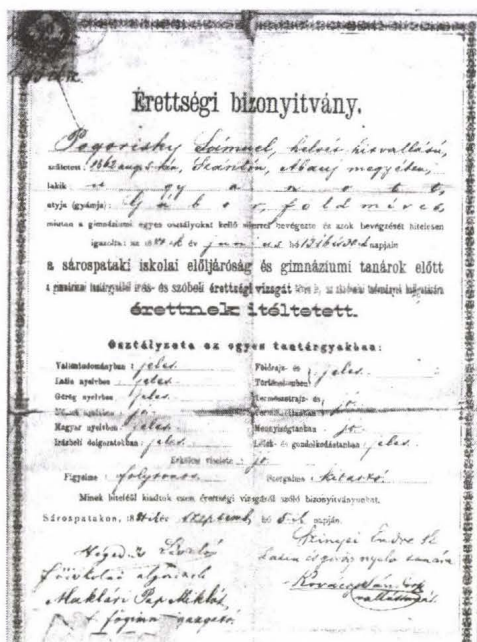 Érettségi bizonyitvány.
Pogorisky Sámuel, helvét hitvallású,
született 1862 aug. Szántón, Abauj megyében,
lakik u g y a n o t t,
atyja (gyámja): G á b o r, f ö l d m ű v e s,
miután a gimnáziumi egyes osztályokat kellő sikerrel bevégezte és azok bevégzését hitelesen
igazolta: az év j u n i u s hó napjain
a sárospataki iskolai előljáróság és gimnáziumi tanárok előtt
a gimnáziumi tantárgyakból irás- és szóbeli érettségi vizsgát
érettnek itéltetett.
Osztályzata az egyes tantárgyakban:
Vallástudományban: jeles.
Latin nyelvben jeles.
Görög nyelvben jeles.
Német nyelvben jó.
Magyar nyelvben jeles.
Irásbeli dolgozatokban: jeles.
Földrajz- és
Történelemben jeles.
Természetrajz- és
Természettanban jó.
Mennyiségtanban jó.
Lélek- és gondolkodástanban: jeles.
Erkölcsi viselete: jó.
Figyelme: folytonos. Szorgalma: kitartó.
Minek hiteléül kiadtuk ezen érettségi vizsgáról szóló bizonyitványunkat.
Sárospatakon, év szeptemb. hó 5-k napján.
Hegedüs László
főiskolai algondnok
Makláry Pap Miklós,
főgimn. igazgató.
Szinyei Endre
Latin és görög nyelv tanára
Kovácsy Sándor
vallástanár.